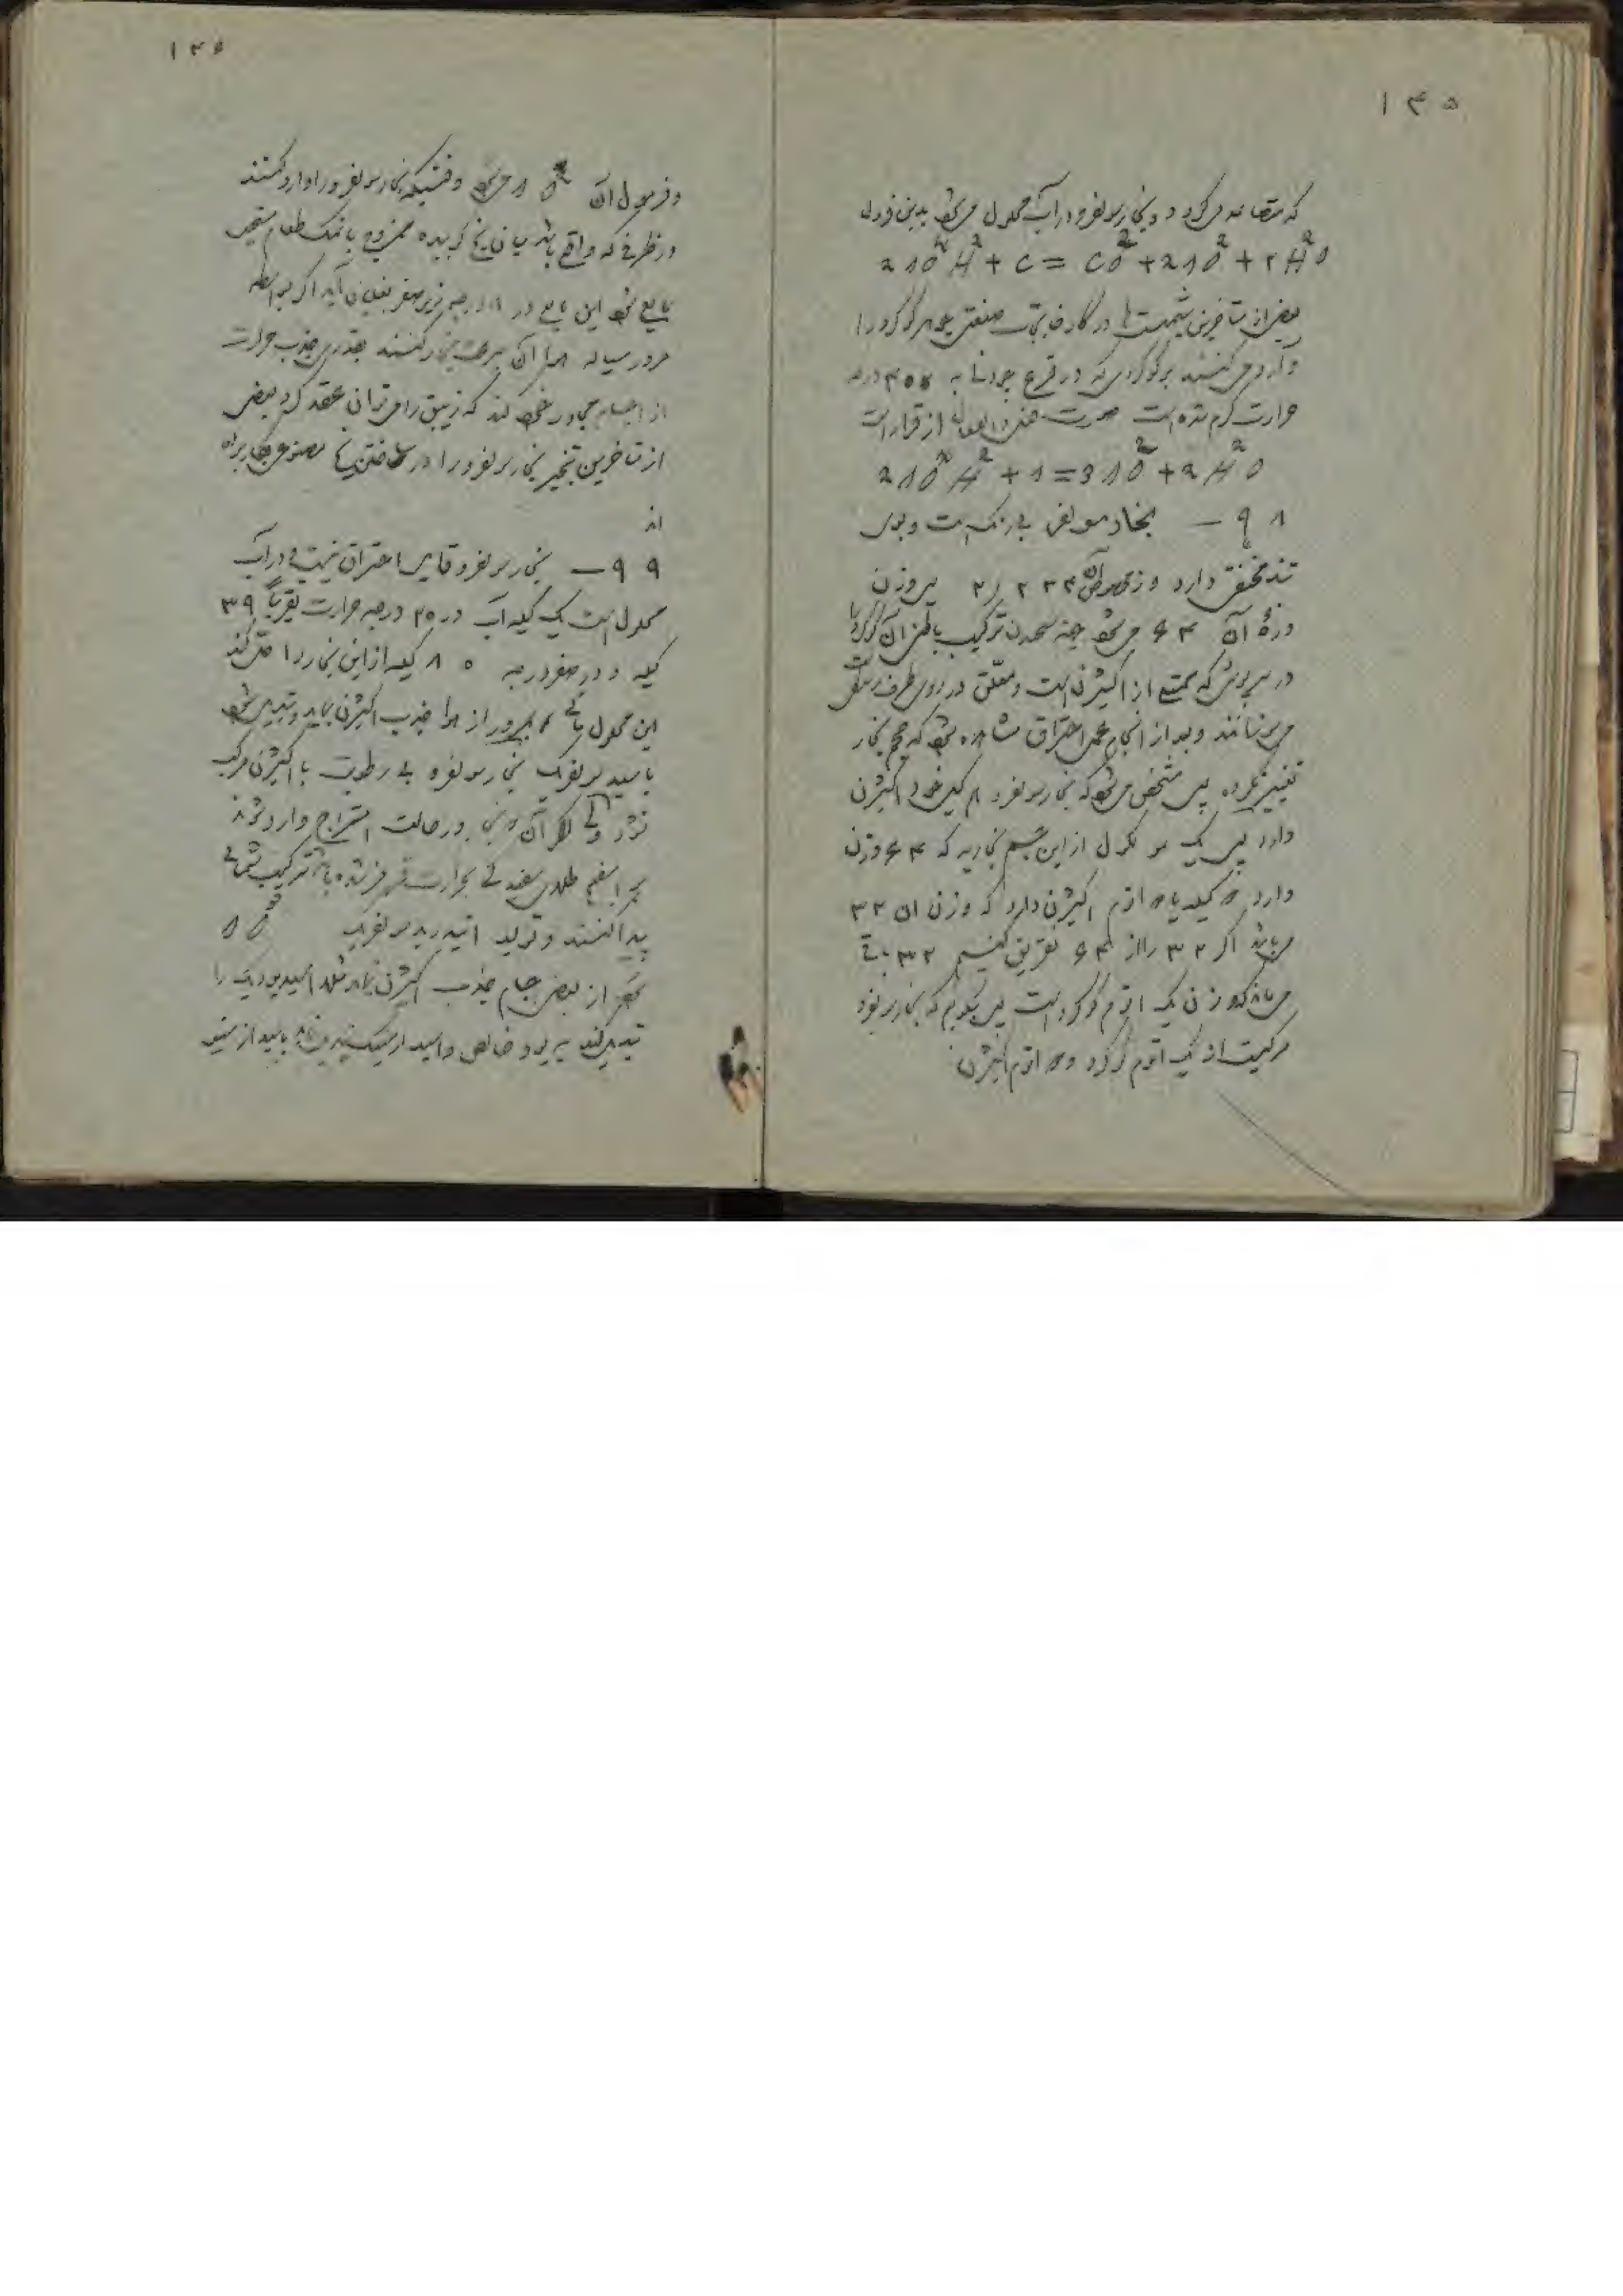 ۱۴۵
که متصاعد می‌گردد و بخار سولفرو در آب محلول می‌شود بدین فرمول
2 S O⁴ H² + C = C O² + 2 S O² + 2 H² O
بعضی از متأخرین شیمیست‌ها در کارخانجات صنعتی جوهر گوگرد را
وارد می‌کنند بر گوگردی که در قرع چدنی به ۴۰۰ درجه
حرارت گرم شده است صورت از قرار است
2 S O⁴ H² + S = 3 S O² + 2 H² O
۹۸ — بخار سولفرو بی رنگ است و بوی
تند مخنقی دارد وزن مخصوص آن ۲/۲۳۴ پس وزن
ذرهٔ آن ۶۴ می‌شود جهة ترکیب باطن آن گوگرد را
در سرپوش که ممتلی از اکسیژن است و معلق در روی ظرف
می‌سوزانند و بعد از انجام عمل احتراق مشاهده می‌شود که حجم بخار
تغییر نکرده پس مشخص می‌شود که بخار سولفرو هم کیل خود اکسیژن
دارد پس یک مولکول از این جسم بخاریه که ۶۴ وزن
دارد ۲ کیله یا ۲ اتم اکسیژن دارد که وزن آن ۳۲
می‌باشد اگر ۳۲ را از ۶۴ تفریق کنیم ۳۲ باقی
می‌ماند که وزن یک اتم گوگرد است پس بگوئیم که بخار سولفرو
مرکبست از یک اتم گوگرد و ۲ اتم اکسیژن
۱۴۶
و فرمول آن S O² می‌شود وقتیکه بخار سولفرو را وارد کنند
در ظرفی که واقع باشد میان یخ کوبیده ممزوج با نمک طعام مستحیل
بمایع شود این مایع در ۸ درجه زیر صفر بغلیان آید اگر بواسطه
مرور سیاله هوا آن را بسرعت بخار کنند بقدری جذب حرارت
از اجسام مجاور خود کند که زیبق را می‌توان عقد کرد بعضی
از متأخرین تبخیر بخار سولفرو را در ساختن یخ مصنوعی بکار برده
اند
۹۹ — بخار سولفرو قابل احتراق نیست در آب
محلول است یک کیله آب در ۲۰ درجه حرارت تقریباً ۳۹
کیله و در صفر درجه ۸۰ کیله از این بخار را حل کند
این محلول مائی بمرور از هوا جذب اکسیژن نماید و تبدیل شود
باسید سولفریک بخار سولفرو بی رطوبت با اکسیژن مرکب
نشود ولی اگر آن در حالت امتزاج وارد شوند
بر اسفنج طلای سفید که بحرارت قرمز شده باشد ترکیب شیمیائی
پیدا کنند و تولید انیدرید سولفریک S O³
بخار از بعضی اجسام جذب اکسیژن نماید مثلا اسید یودیک را
تبدیل کند به یود خالص و اسید ارسنیک باسید ارسنیو